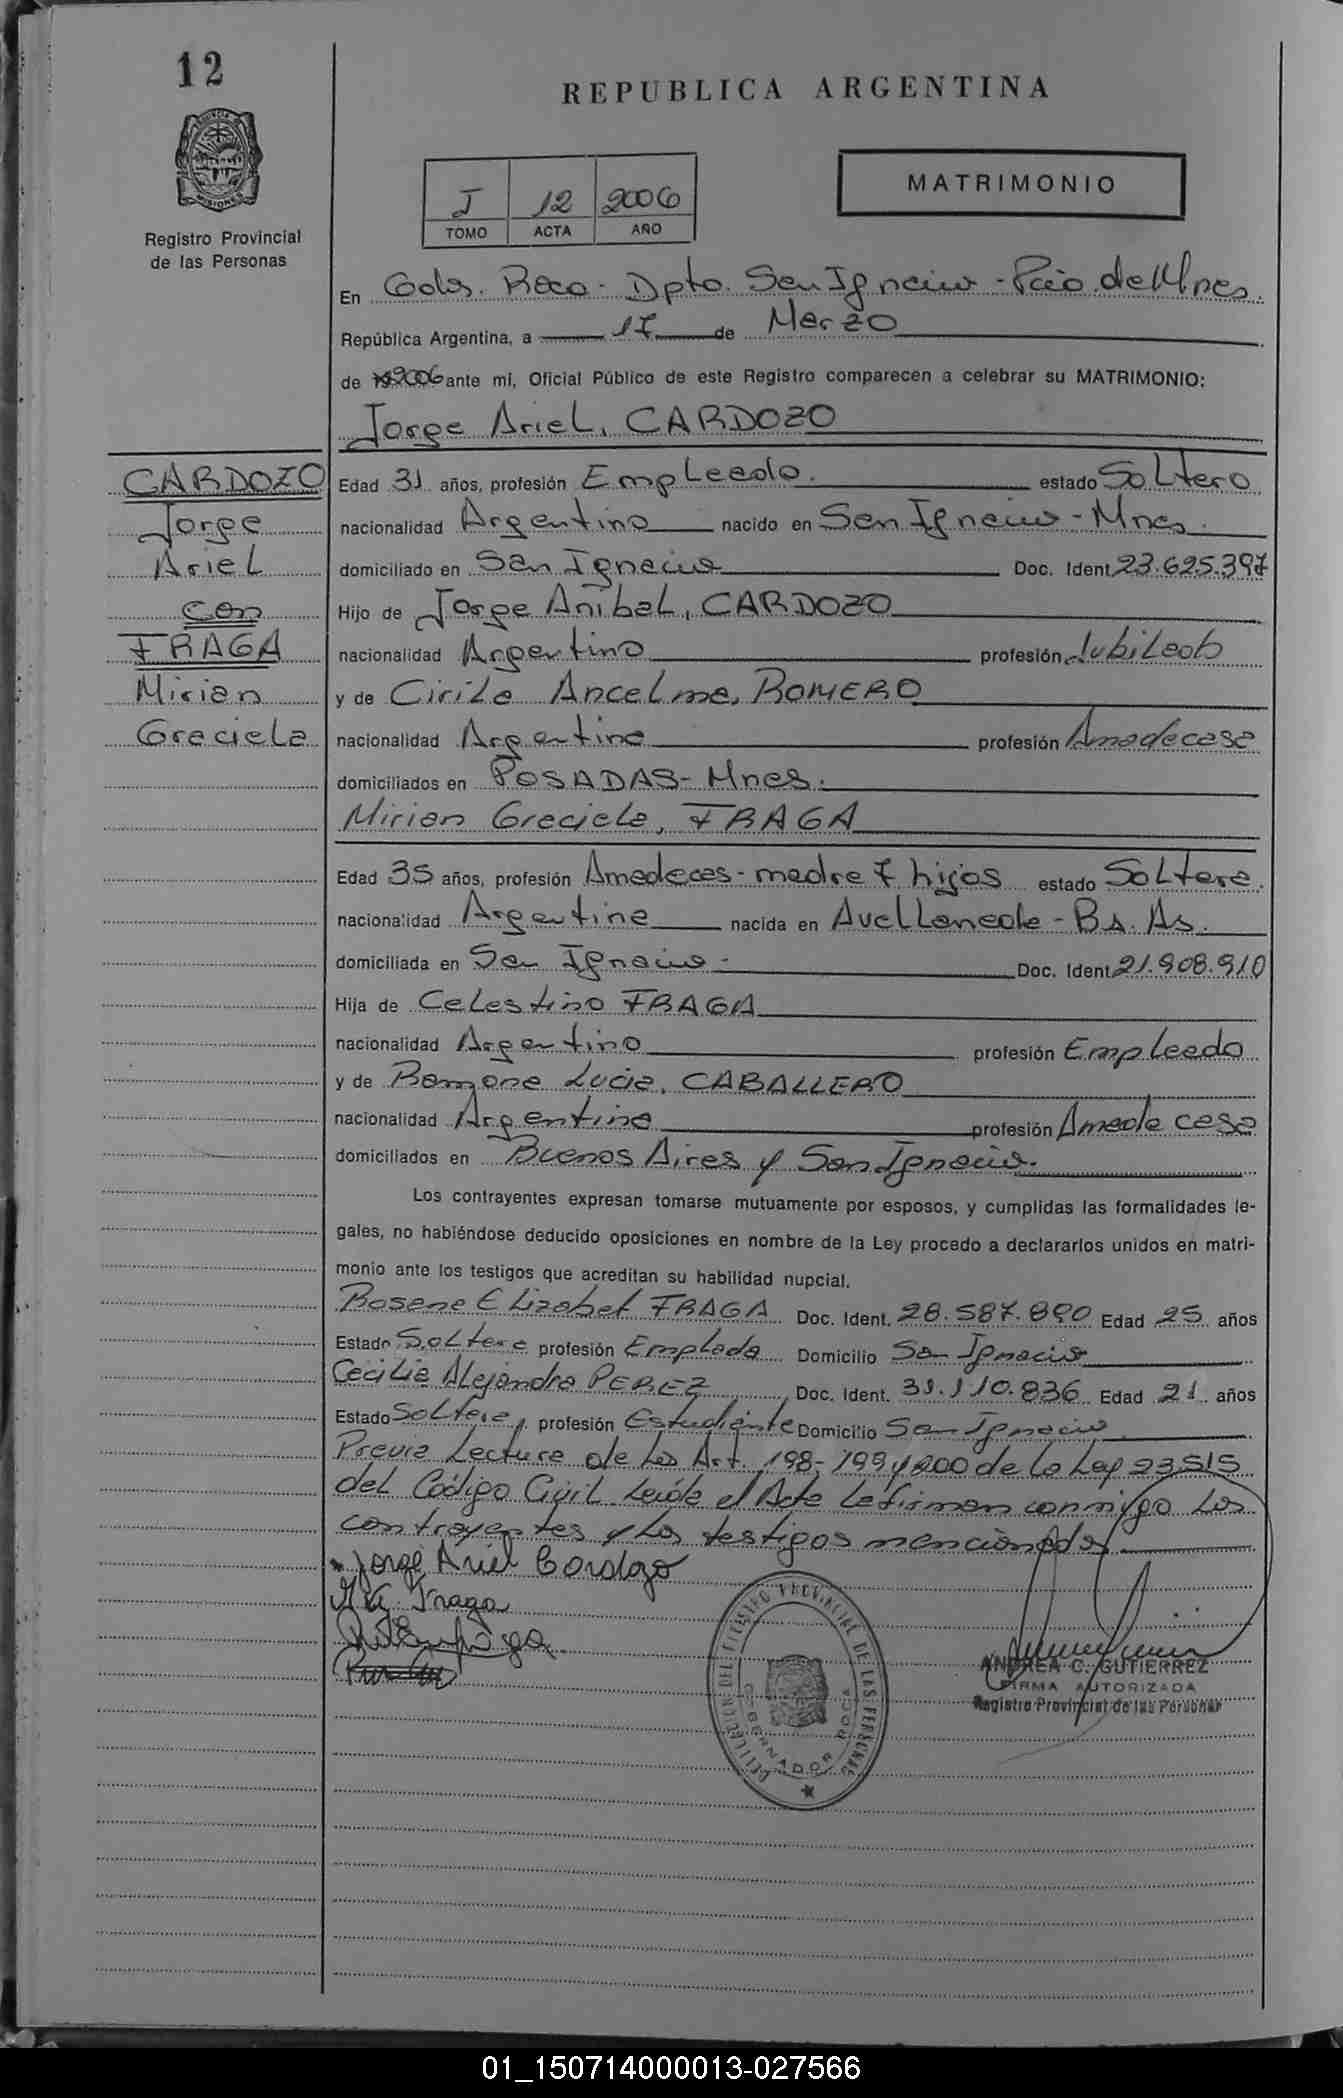 12
REPUBLICA ARGENTINA
MISIONES
Registro Provincial
de las Personas
I 12 2006
TOMO ACTA AÑO
MATRIMONIO
En Gdor. Roca - Dpto. San Ignacio - Pcio de Mnes.
República Argentina, a 17 de Marzo
de 2006 ante mi, Oficial Público de este Registro comparecen a celebrar su MATRIMONIO:
Jorge Ariel, CARDOZO
CARDOZO
Jorge
Ariel
con
FRAGA
Mirian
Graciela
Edad 31 años, profesión Empleado. estado Soltero
nacionalidad Argentino nacido en San Ignacio - Mnes.
domiciliado en San Ignacio Doc. Ident. 23.625.397
Hijo de Jorge Anibal, CARDOZO
nacionalidad Argentino profesión Jubilado
y de Cirila Ancelma, ROMERO
nacionalidad Argentina profesión Amadecasa
domiciliados en POSADAS - Mnes.
Mirian Graciela, FRAGA
Edad 35 años, profesión Amadecas - madre 7 hijos estado Soltera.
nacionalidad Argentina nacida en Avellaneda - Bs. As.
domiciliada en San Ignacio - Doc. Ident. 21.908.910
Hija de Celestino FRAGA
nacionalidad Argentino profesión Empleado
y de Ramona Lucia, CABALLERO
nacionalidad Argentina profesión Amada casa
domiciliados en Buenos Aires y San Ignacio.
Los contrayentes expresan tomarse mutuamente por esposos, y cumplidas las formalidades le-
gales, no habiéndose deducido oposiciones en nombre de la Ley procedo a declararlos unidos en matri-
monio ante los testigos que acreditan su habilidad nupcial.
Rosana Elizabet FRAGA Doc. Ident. 28.587.890 Edad 25 años
Estado Soltera profesión Emplada Domicilio San Ignacio
Cecilia Alejandra PEREZ Doc. Ident. 31.110.836 Edad 21 años
Estado Soltera, profesión Estudiante Domicilio San Ignacio
Previa Lectura de los Art. 198-199 y 200 de la Ley 23515
del Código Civil. Leída el Acta la firman conmigo los
contrayentes y los testigos mencionados
Jorge Ariel Cardozo
M G Fraga
ANDREA C. GUTIERREZ
FIRMA AUTORIZADA
Registro Provincial de las Personas
DELEGACION DEL REGISTRO PROVINCIAL DE LAS PERSONAS
GOBERNADOR ROCA
01_150714000013-027566